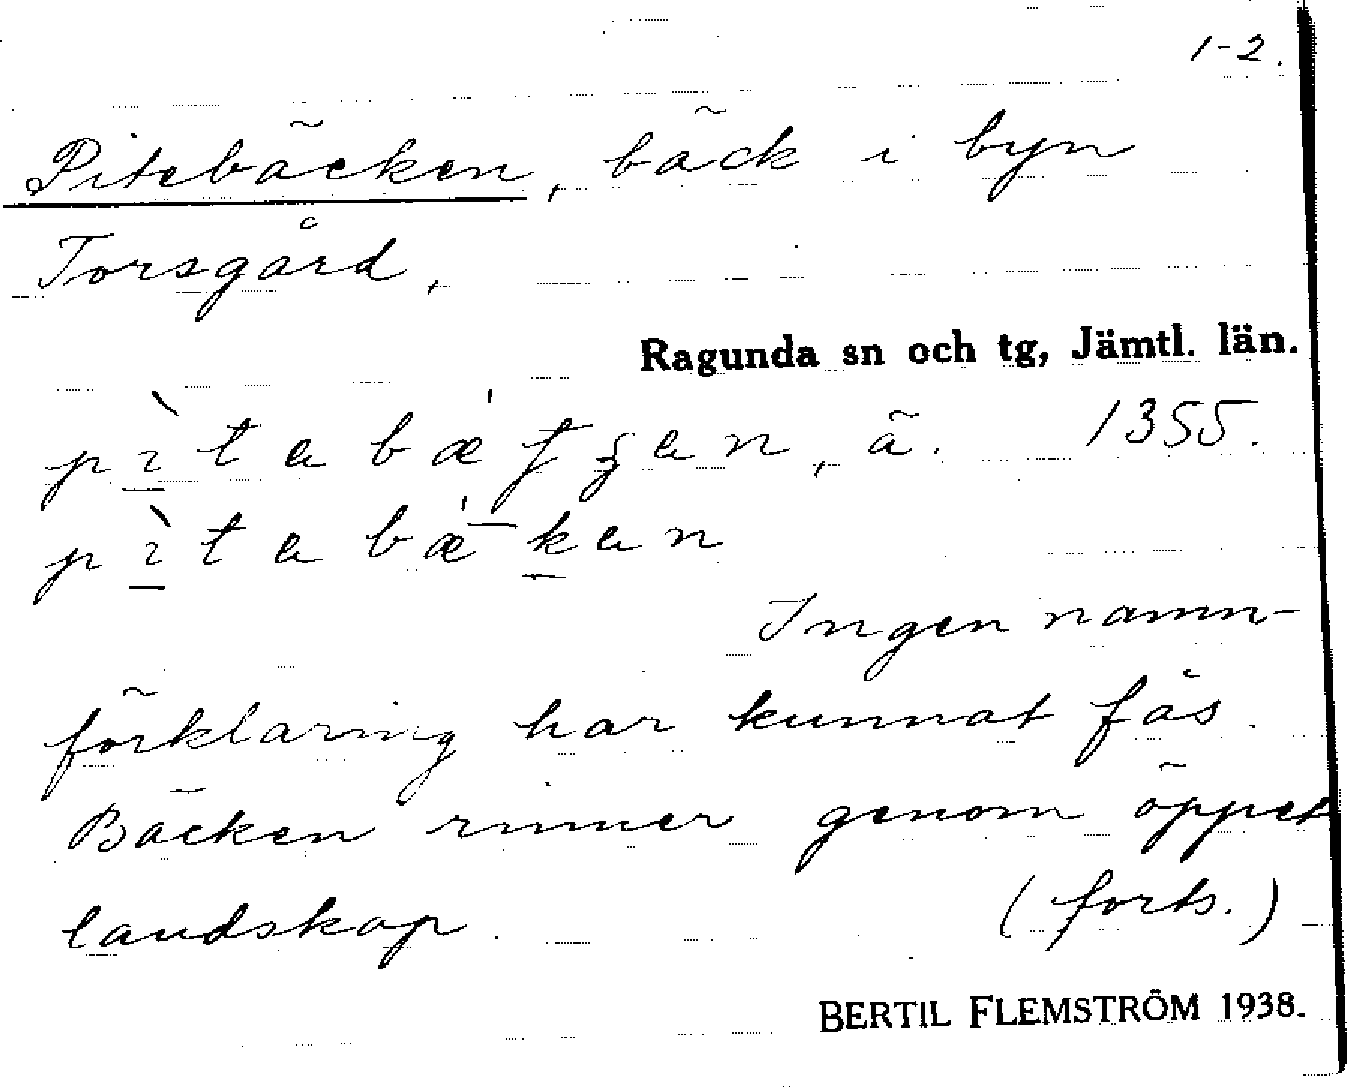 1-2.
Pitebäcken, bäck i byn
Torsgård,
Ragunda sn och tg, Jämtl. län.
, ä. 1355.
Ingen namn-
förklaring har kunnat fås.
Bäcken rinner genom öppet
landskap. (forts.)
BERTIL FLEMSTRÖM 1938.